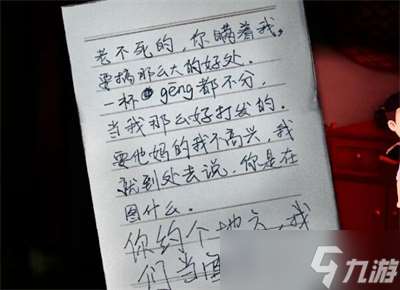 老不死的,你瞒着我。
要搞那么大的好处.
一杯gēng都不分.
当我那么好打发的.
要他妈的我不高兴,我
就到处去说.你是在
图什么.
你约个地方,我
们当面
九游